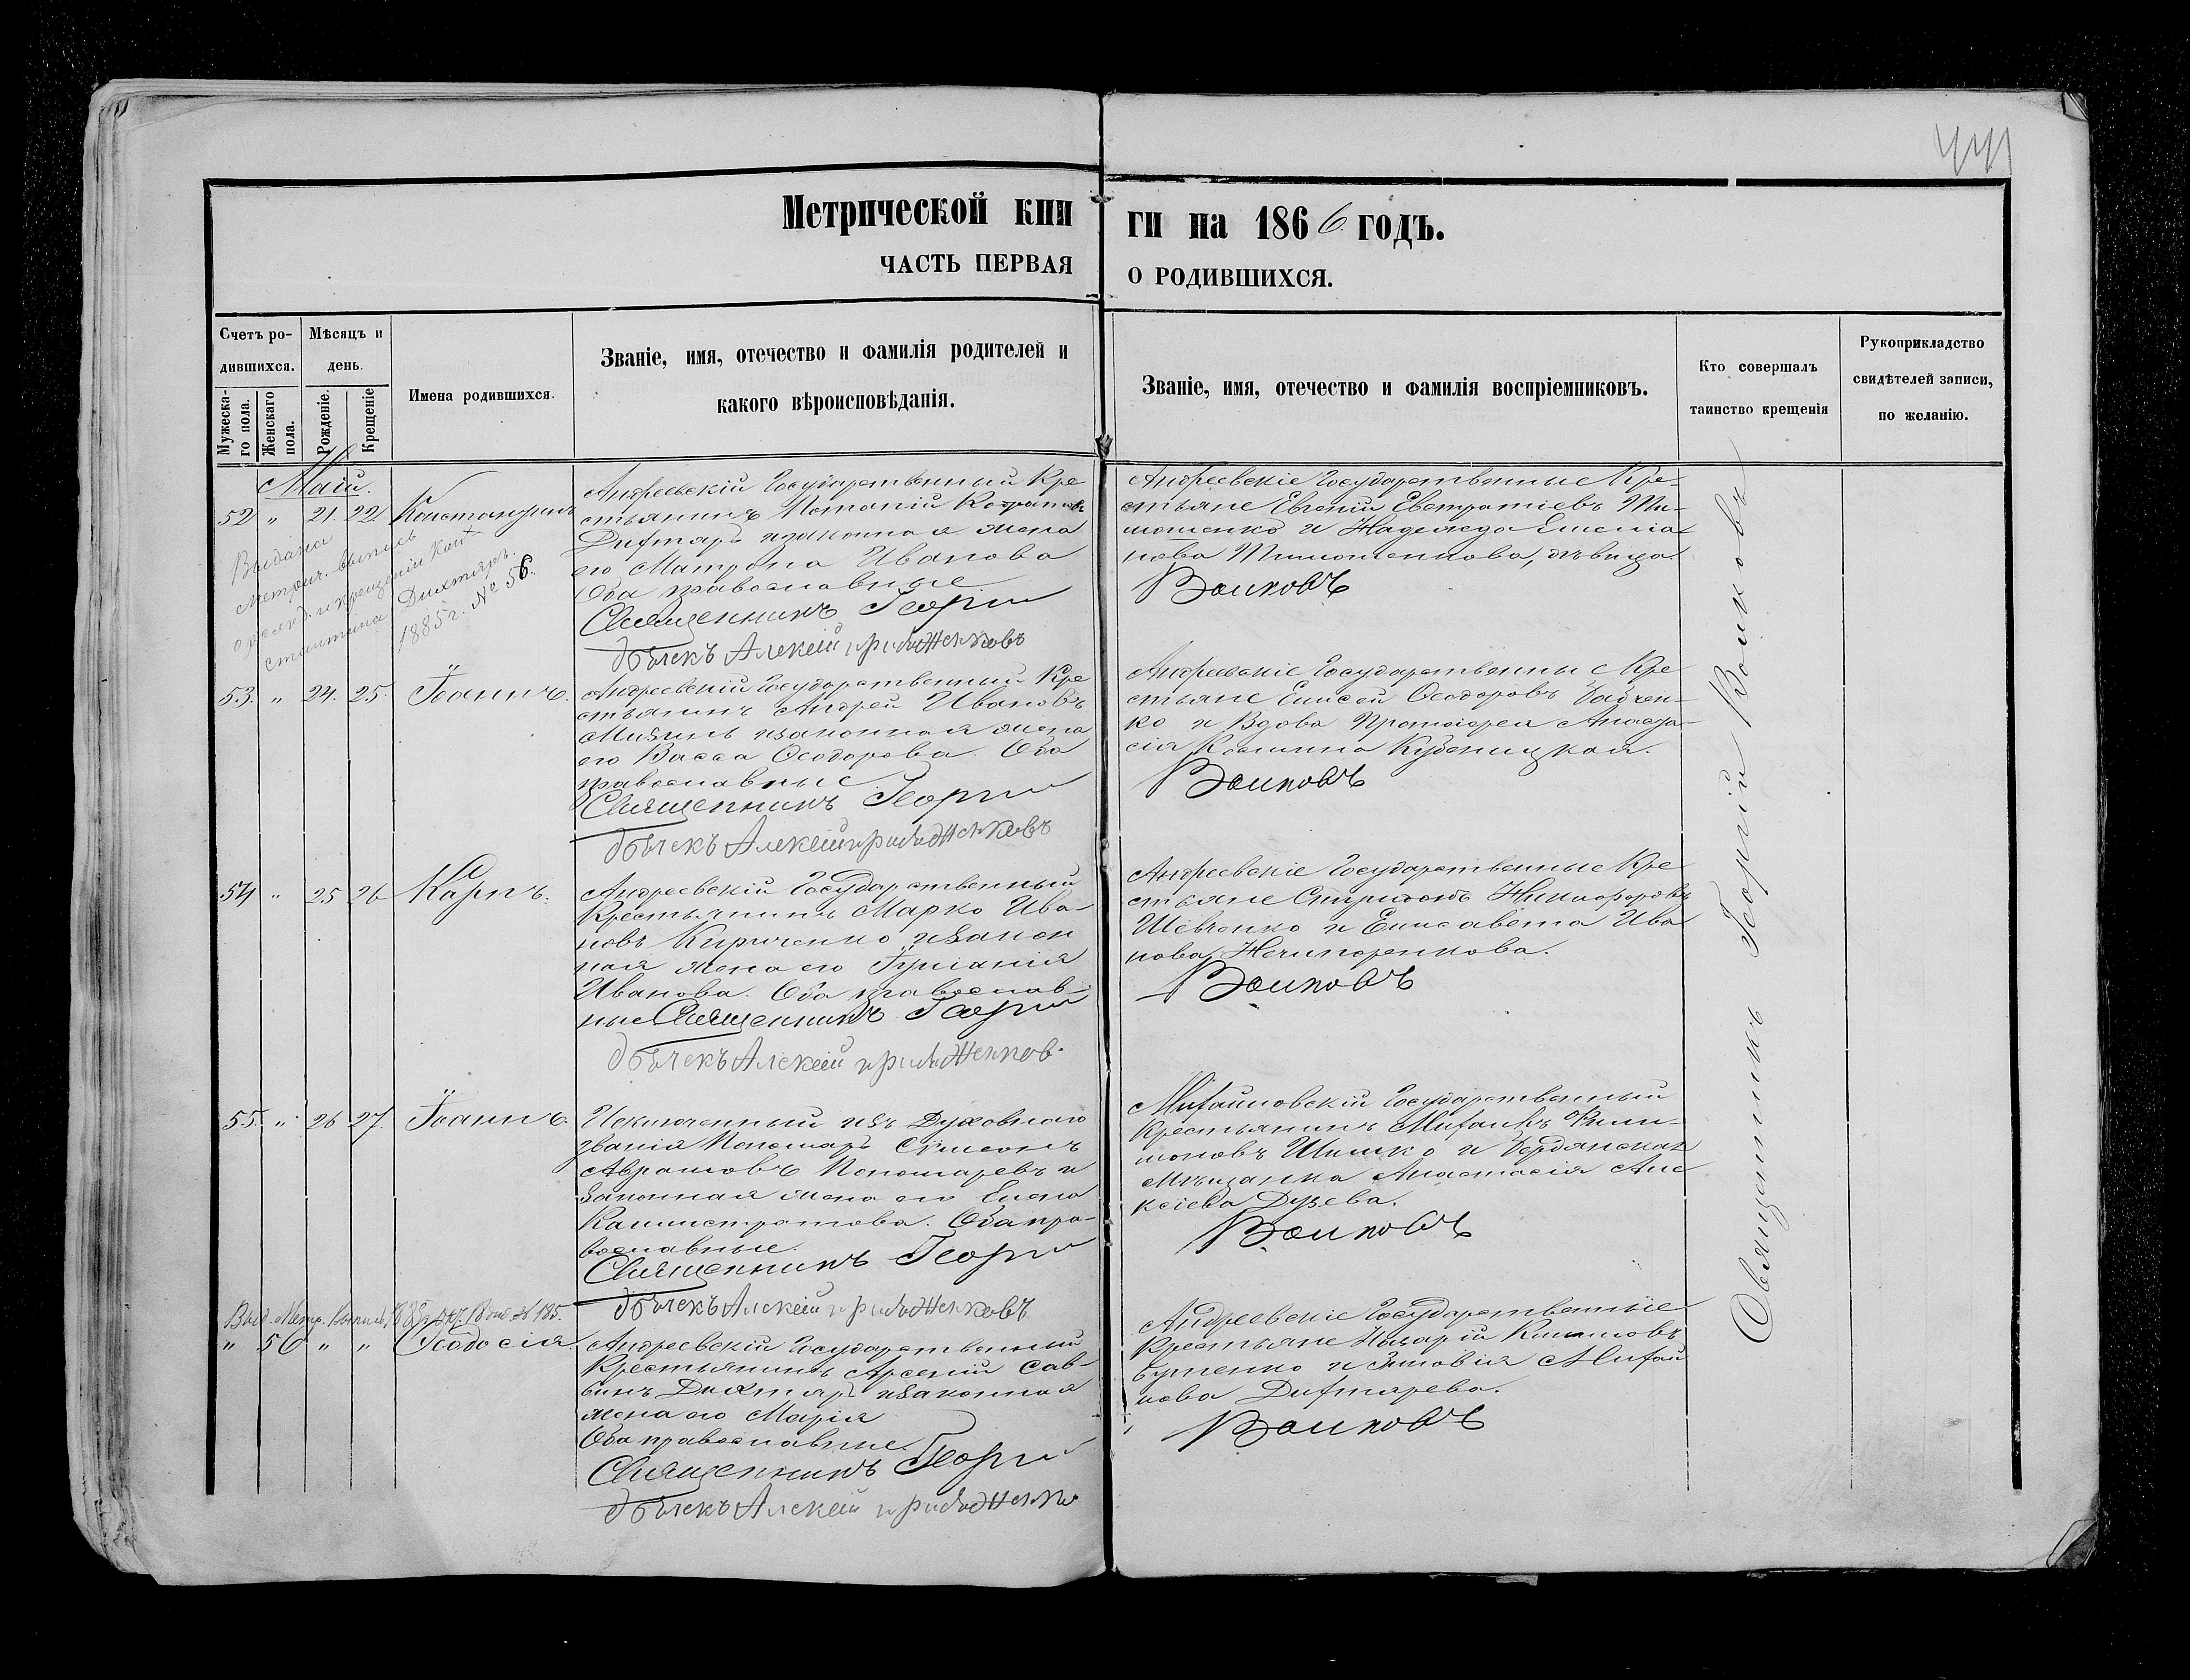 Метрической кни
ги на 1866 годъ.
ЧАСТЬ ПЕРВАЯ
О РОДИВШИХСЯ.
Счетъ ро-
дившихся.
Мужеска-
го пола.
Женскаго
пола.
Мѣсяцъ и
день.
Рожденіе.
Крещеніе
Имена родившихся.
Званіе, имя, отечество и фамилія родителей и
какого вѣроисповѣданія.
Званіе, имя, отечество и фамилія воспріемниковъ.
Кто совершалъ
таинство крещенія
Рукоприкладство
свидѣтелей записи,
по желанію.
Май.
52 " 21. 22. Константинъ
Выдана
метрич. выпись
о рожд. и крещеніи Кон
стантина Дихтяръ.
1885 г. № 56.
Андреевскій Государственный Кре
стьянинъ
Дихтяръ и законная жена
его Матрона Иванова
Оба православные
Священникъ Георгій
Алексій
Андреевскіе Государственные Кре-
стьяне Евгеній Евстратіевъ Ти-
мошенко и Надежда
нова Тимошенкова, дѣвица.
Воиновъ
53. " 24. 25. Іоаннъ.
Андреевскій Государственный Кре
стьянинъ Андрей Ивановъ
Мизинъ и законная жена
его Васса Ѳеодорова. Оба
православные
Священникъ Георгій
Алексій
Андреевскіе Государственные Кре
стьяне Елисей Ѳеодоровъ Бабчен-
ко и Вдова Протоіерея Анаста-
сія
Воиновъ
54 " 25 26 Карпъ.
Андреевскій Государственный
Крестьянинъ Марко Ива-
новъ Кириченко и закон
ная жена его Іуліанія
Иванова. Оба православ-
ные Священникъ Георгій
Алексій
Андреевскіе Государственные Кре
стьяне Спиридонъ Никифоровъ
Шевченко и Елисавета Ива
нова Нечипоренкова.
Воиновъ
55. " 26 27. Іоаннъ.
Исключенный изъ Духовнаго
званія Пономарь Сѵмеонъ
Авраамовъ Пономаревъ и
законная жена его Елена
Каллистратова. Оба пра-
вославные.
Священникъ Георгій
Алексій
Михайловскій Государственный
Крестьянинъ Михаилъ Фили-
моновъ Шишко и Бердянская
Мѣщанка Анастасія Але
ксіева
Воиновъ
Выд. Метр. Выпись
" 56 " " Ѳеодосія
Андреевскій Государственный
Крестьянинъ Арсеній Сав-
винъ Дихтяръ и законная
жена его Марія
Оба православные.
Священникъ Георгій
Алексій
Андреевскіе Государственные
Крестьяне Назарій Климовъ
Бутенко и Зиновія Михай
лова Дихтярева.
Воиновъ
Священникъ Георгій Воиновъ